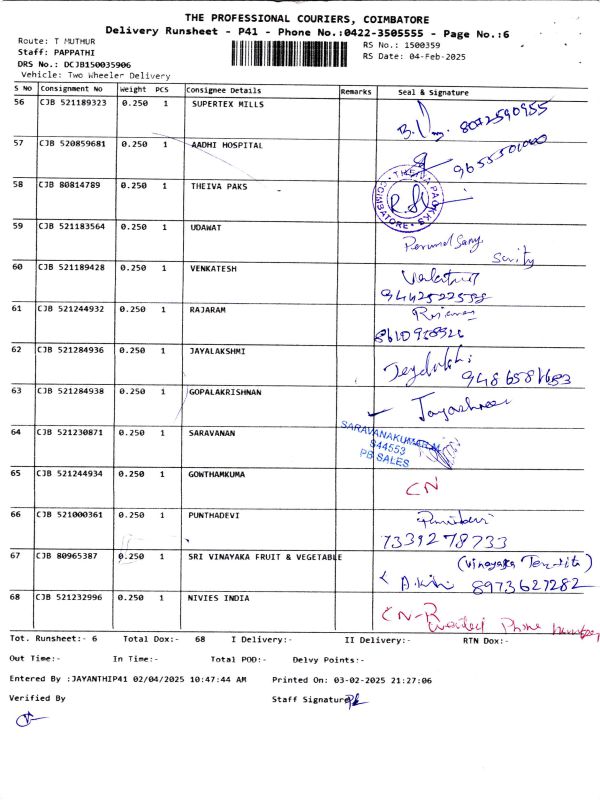 THE PROFESSIONAL COURIERS, COIMBATORE
Delivery Runsheet - P41 - Phone No.:0422-3505555 - Page No.:6
Route: T MUTHUR
RS No.: 1500359
Staff: PAPPATHI
RS Date: 04-Feb-2025
DRS No.: DCJB150035906
Vehicle: Two Wheeler Delivery
S NO Consignment No Weight PCS Consignee Details Remarks Seal & Signature
56 CJB 521189323 0.250 1 SUPERTEX MILLS
8072590955
57 CJB 520859681 0.250 1 AADHI HOSPITAL
58 CJB 80814789 0.250 1 THEIVA PAKS
THEIVA PACKS COIMBATORE
59 CJB 521183564 0.250 1 UDAWAT
60 CJB 521189428 0.250 1 VENKATESH
9442522558
61 CJB 521244932 0.250 1 RAJARAM
62 CJB 521284936 0.250 1 JAYALAKSHMI
63 CJB 521284938 0.250 1 GOPALAKRISHNAN
Jayashree
64 CJB 521230871 0.250 1 SARAVANAN
SARAVANAKUMAR.M
S44553
PB SALES
65 CJB 521244934 0.250 1 GOWTHAMKUMA
CN
66 CJB 521000361 0.250 1 PUNTHADEVI
7339278733
67 CJB 80965387 0.250 1 SRI VINAYAKA FRUIT & VEGETABLE
8973627282
68 CJB 521232996 0.250 1 NIVIES INDIA
CN-R
Phone
Tot. Runsheet:- 6 Total Dox:- 68 I Delivery:- II Delivery:- RTN Dox:-
Out Time:- In Time:- Total POD:- Delvy Points:-
Entered By :JAYANTHIP41 02/04/2025 10:47:44 AM Printed On: 03-02-2025 21:27:06
Verified By Staff Signature